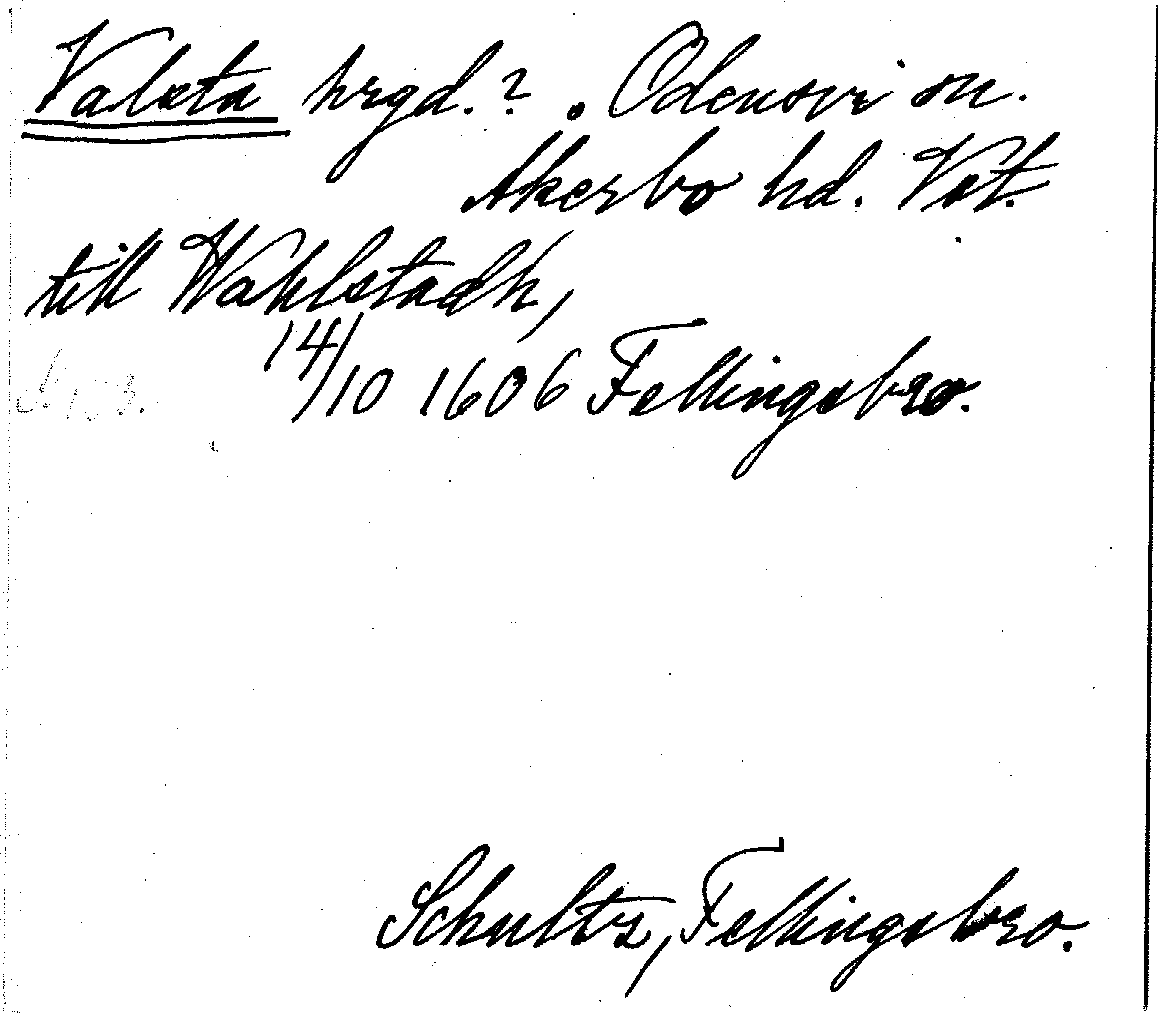 Valsta hrgd.? . Odensvi sn.
Åkerbo hd. Vst.
till Wahlstadh,
14/10 1606 Fellingsbro.
Schultz, Fellingsbro.